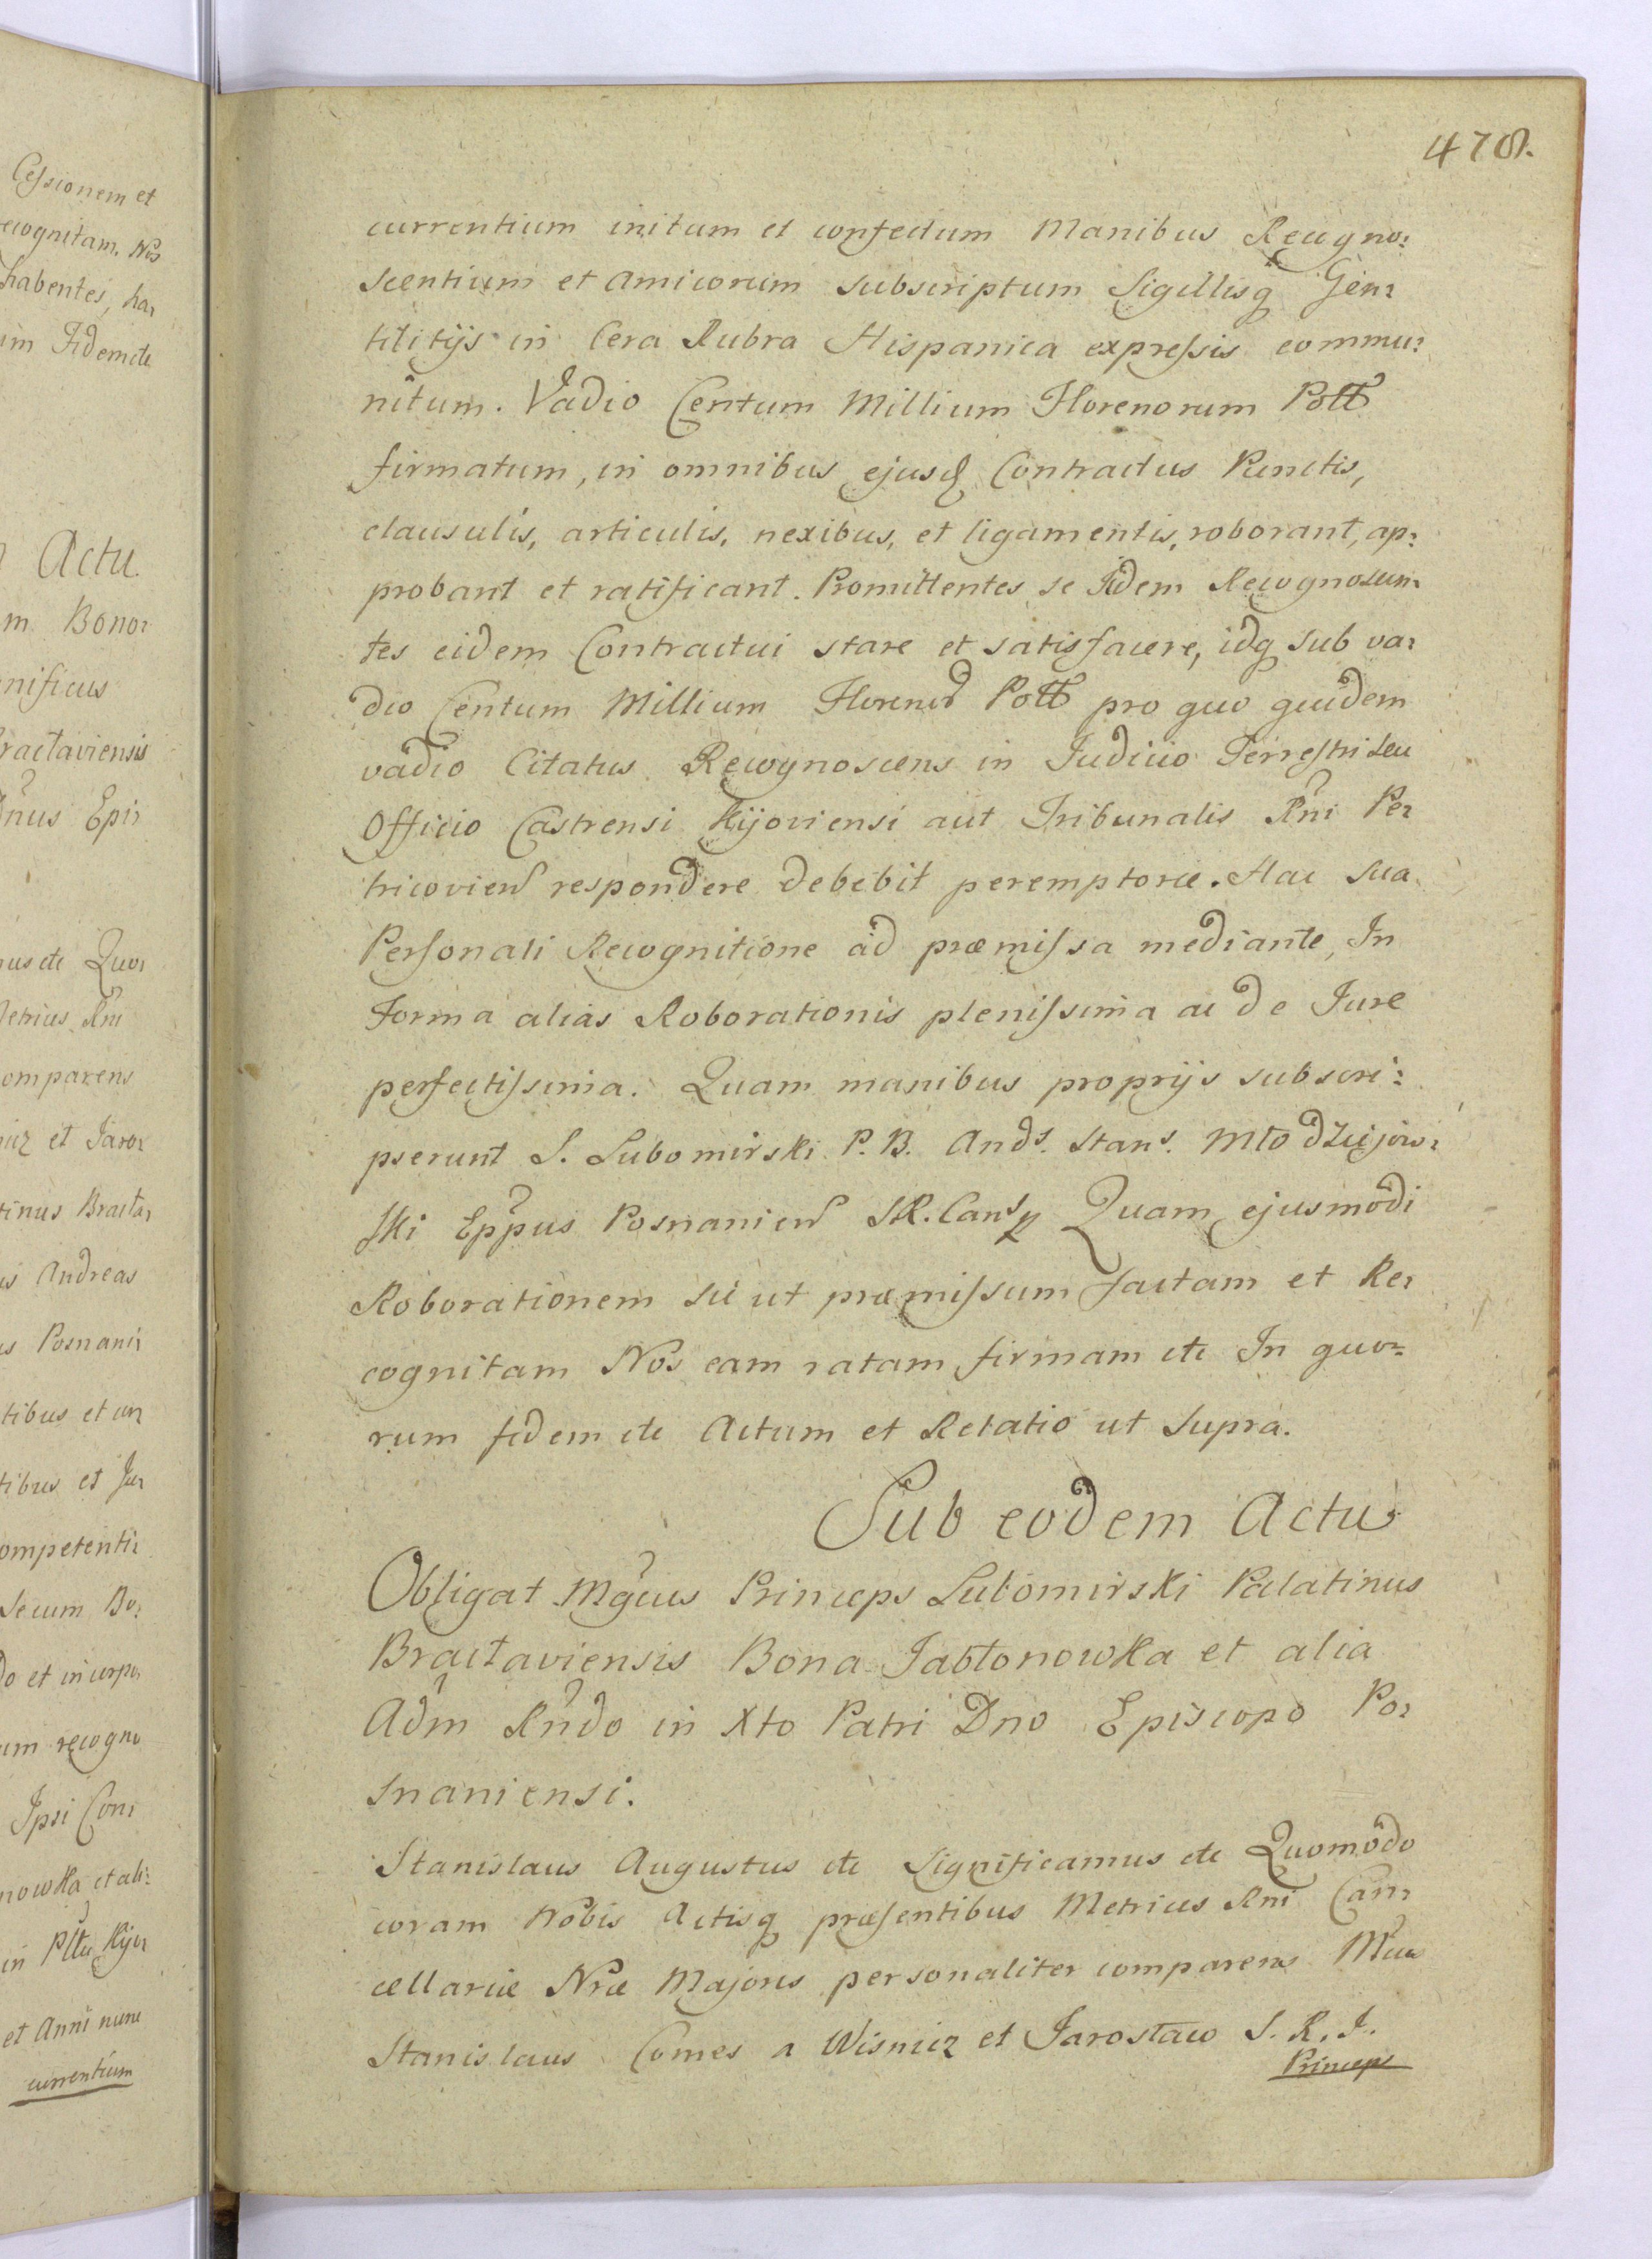 Cessionem et
recognitam. Nos
habentes, ha,
im Fidem etc
Actu
m Bono,
nificus
ractaviensis
Dnus Epi,
nus etc Quo,
Metrices Rni
omparens
icz et Jaro,
tinus Bracta,
us Andreas
us Posnani,
tibus et con,
tibus et Ju,
ompetenti,
secum Bo,
do et in corpo,
um recogno
Ipsi Con,
nowka et ali:
in Pltu Kijo,
et Anni nunc
currentium
478.
currentium initum et confectum Manibus Recogno:
scentium et Amicorum subscriptum Sigillisq Gen,
tilitijs in Cera Rubra Hispanica expressis commu:
nitum. Vadio Centum Millium Florenorum Poll
firmatum, in omnibus ejusd Contractus Punctis,
clausulis, articulis, nexibus, et ligamentis, roborant, ap:
probant et ratificant. Promittentes se Iidem Recognoscen,
tes eidem Contractui stare et satisfacere, idq sub va,
dio Centum Millium Floreno Poll pro quo quidem
vadio Citatus Recognoscens in Judicio Terrestri seu
Officio Castrensi Kijoviensi aut Tribunalis Rni Pe,
tricovien respondere debebit peremptorie. Hac sua
Personali Recognitione ad præmissa mediante, In
Forma alias Roborationis plenissima ac de Jure
perfectissima. Quam manibus proprijs subscri:
pserunt S. Lubomirski P. B. Ands. Stans. Młodziejow,
ski Eppus Posnanien SR. Cans Quam ejusmodi
Roborationem sic ut præmissum factam et Re,
cognitam Nos eam ratam firmam etc In quo=
rum fidem etc Actum et Relatio ut supra.
Sub eodem Actu
Obligat Mgcus Princeps Lubomirski Palatinus
Bractaviensis Bona Jabłonowka et alia
Adm Rndo in Xto Patri Dno Episcopo Po,
snaniensi.
Stanislaus Augustus etc Significamus etc Quomodo
coram Nobis Actisq præsentibus Metrices Rni Can,
cellariæ Nræ Majoris personaliter comparens Mcus
Stanislaus Comes a Wisnicz et Jarosław S. R. I.
Princeps